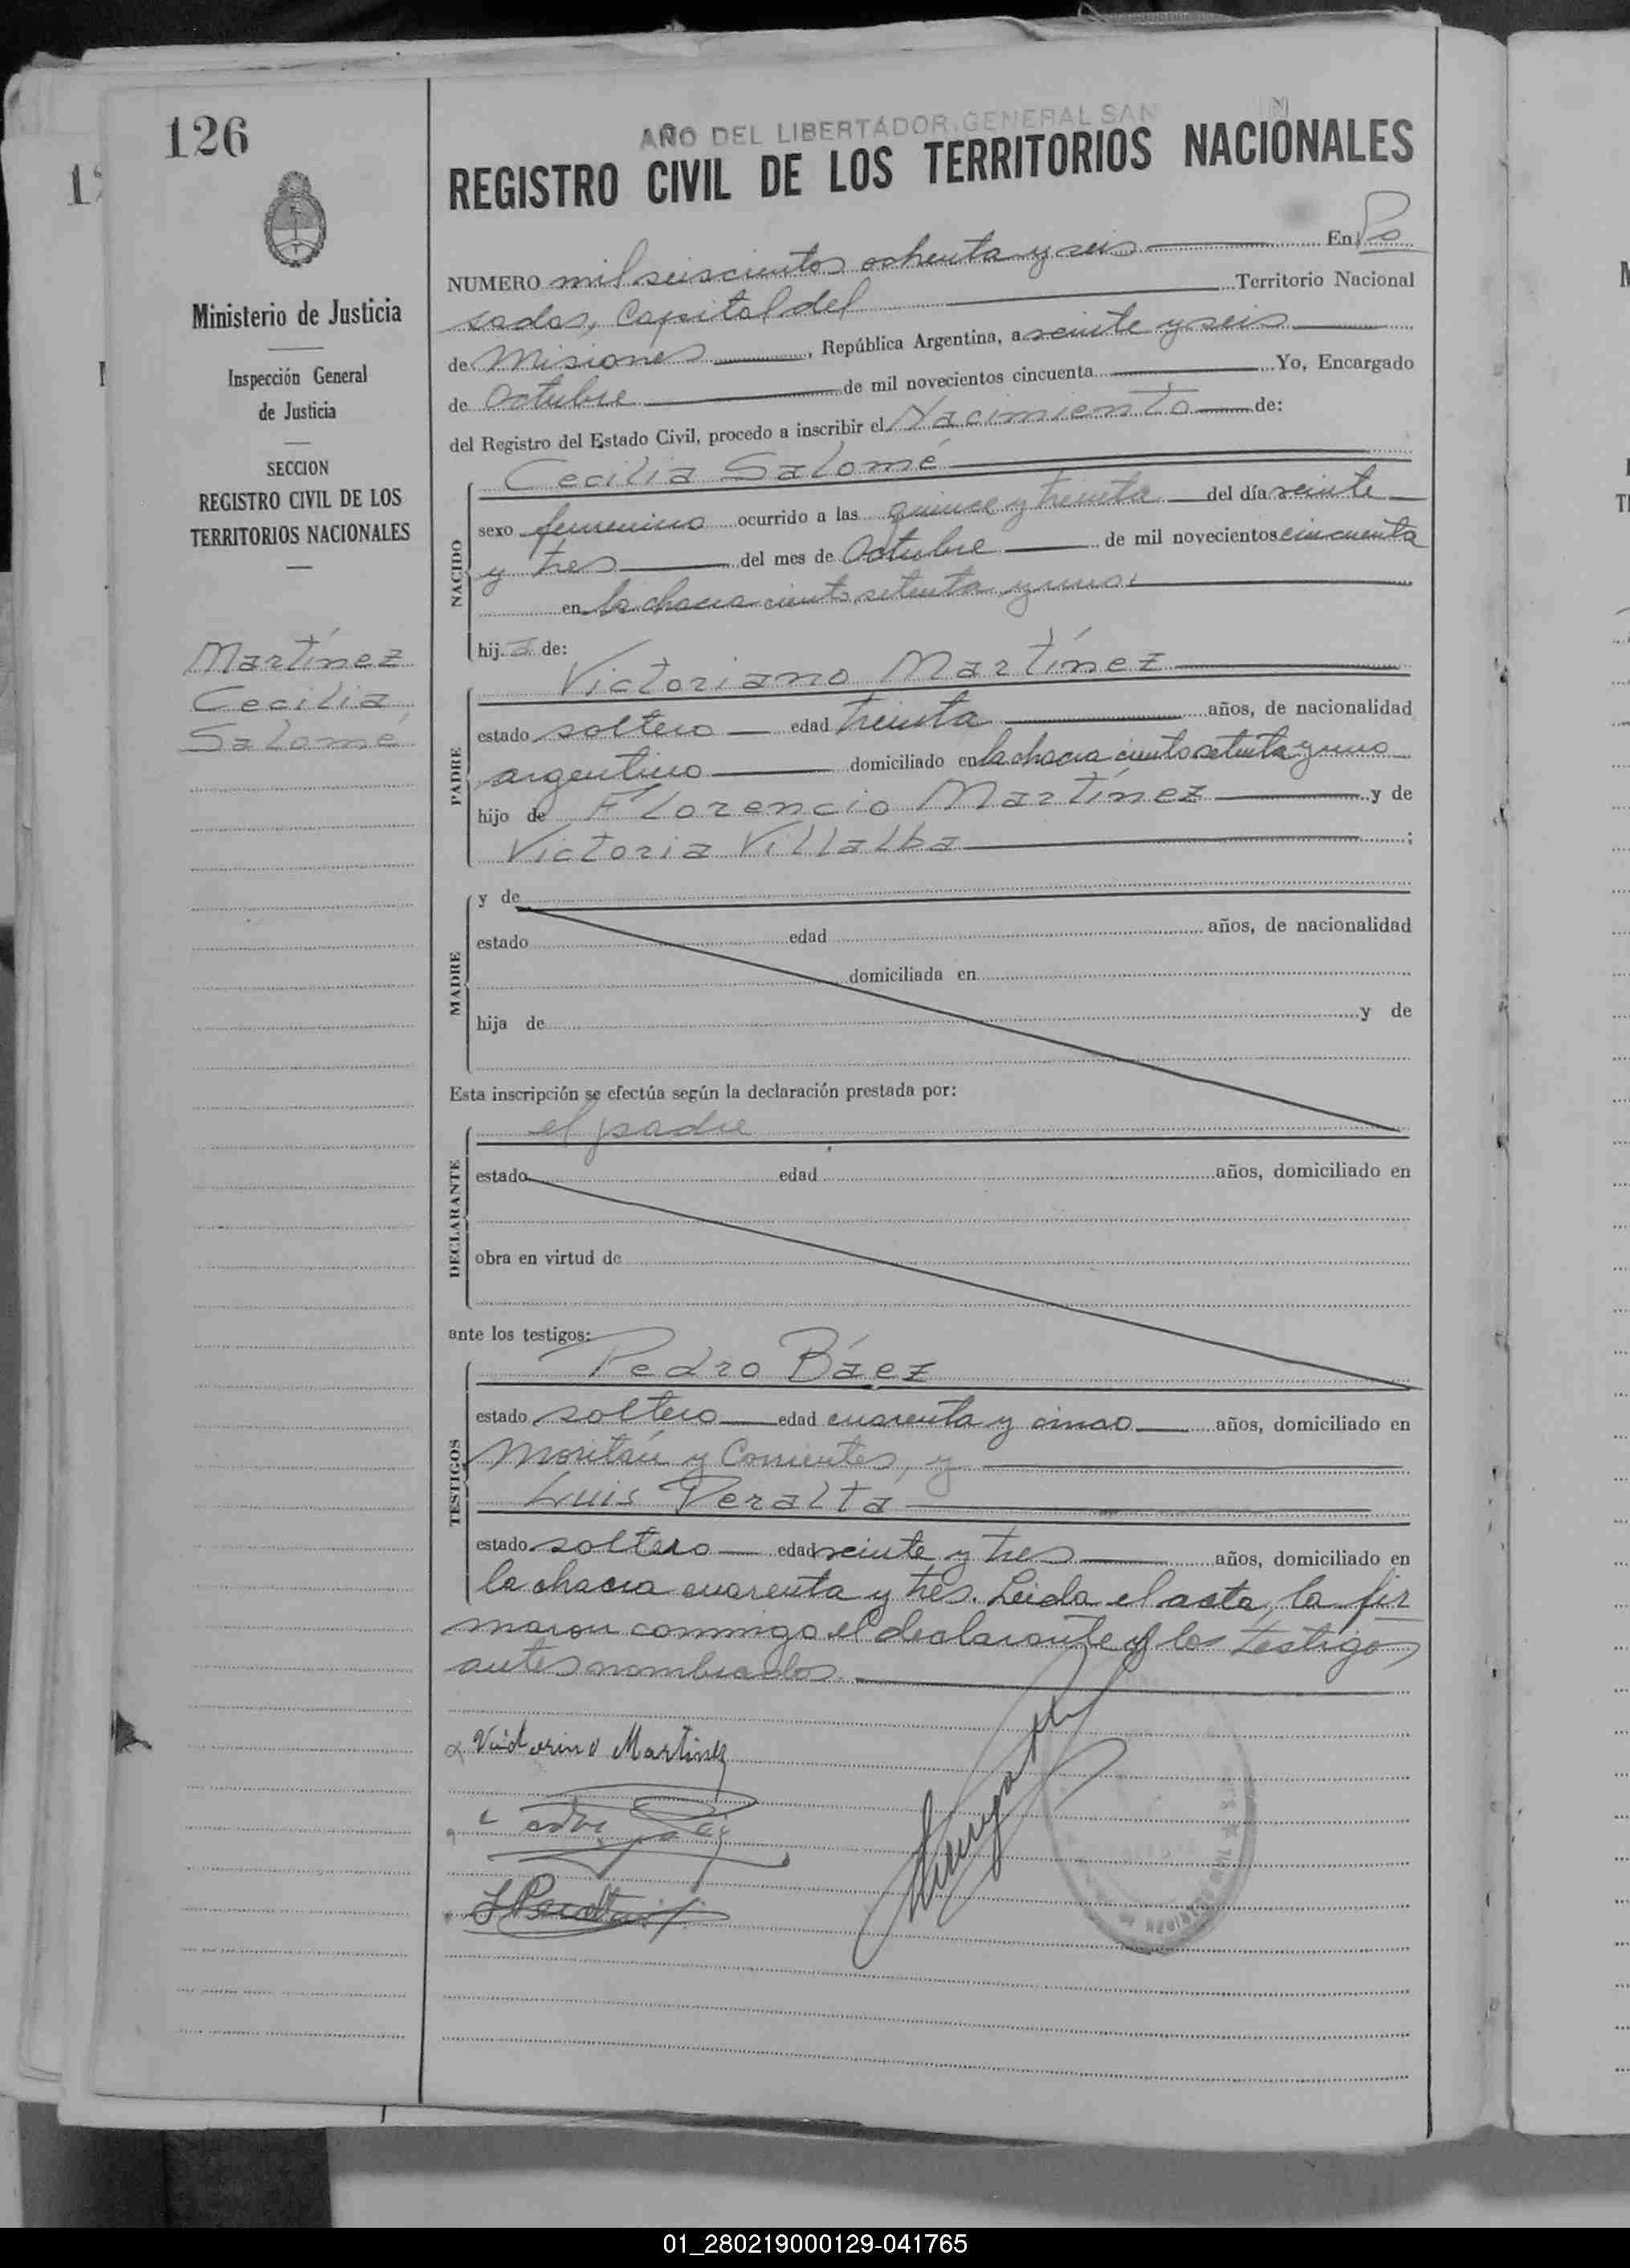 126
AÑO DEL LIBERTADOR GENERAL SAN
REGISTRO CIVIL DE LOS TERRITORIOS NACIONALES
Ministerio de Justicia
Inspección General
de Justicia
SECCION
REGISTRO CIVIL DE LOS
TERRITORIOS NACIONALES
Martínez
Cecilia
Salomé
NUMERO mil seiscientos ochenta y seis En Po
sadas, Capital del Territorio Nacional
de Misiones, República Argentina, a veinte y seis
de Octubre de mil novecientos cincuenta Yo, Encargado
del Registro del Estado Civil, procedo a inscribir el Nacimiento de:
NACIDO
Cecilia Salomé
sexo femenino ocurrido a las quince y treinta del día veinte
y tres del mes de Octubre de mil novecientos cincuenta
en la chacra ciento setenta y uno.
hija de:
PADRE
Victoriano Martínez
estado soltero edad treinta años, de nacionalidad
argentino domiciliado en la chacra ciento setenta y uno
hijo de Florencio Martínez y de
Victoria Villalba ;
MADRE
y de
estado edad años, de nacionalidad
domiciliada en
hija de y de
Esta inscripción se efectúa según la declaración prestada por:
DECLARANTE
el padre
estado edad años, domiciliado en
obra en virtud de
ante los testigos:
TESTIGOS
Pedro Báez
estado soltero edad cuarenta y cinco años, domiciliado en
Moritán y Corrientes, y
Luis Peralta
estado soltero edad veinte y tres años, domiciliado en
la chacra cuarenta y tres. Leida el acta, la fir
maron conmigo el declarante y los testigos
antes nombrados.
Victorino Martinez
L Peralta
01_280219000129-041765